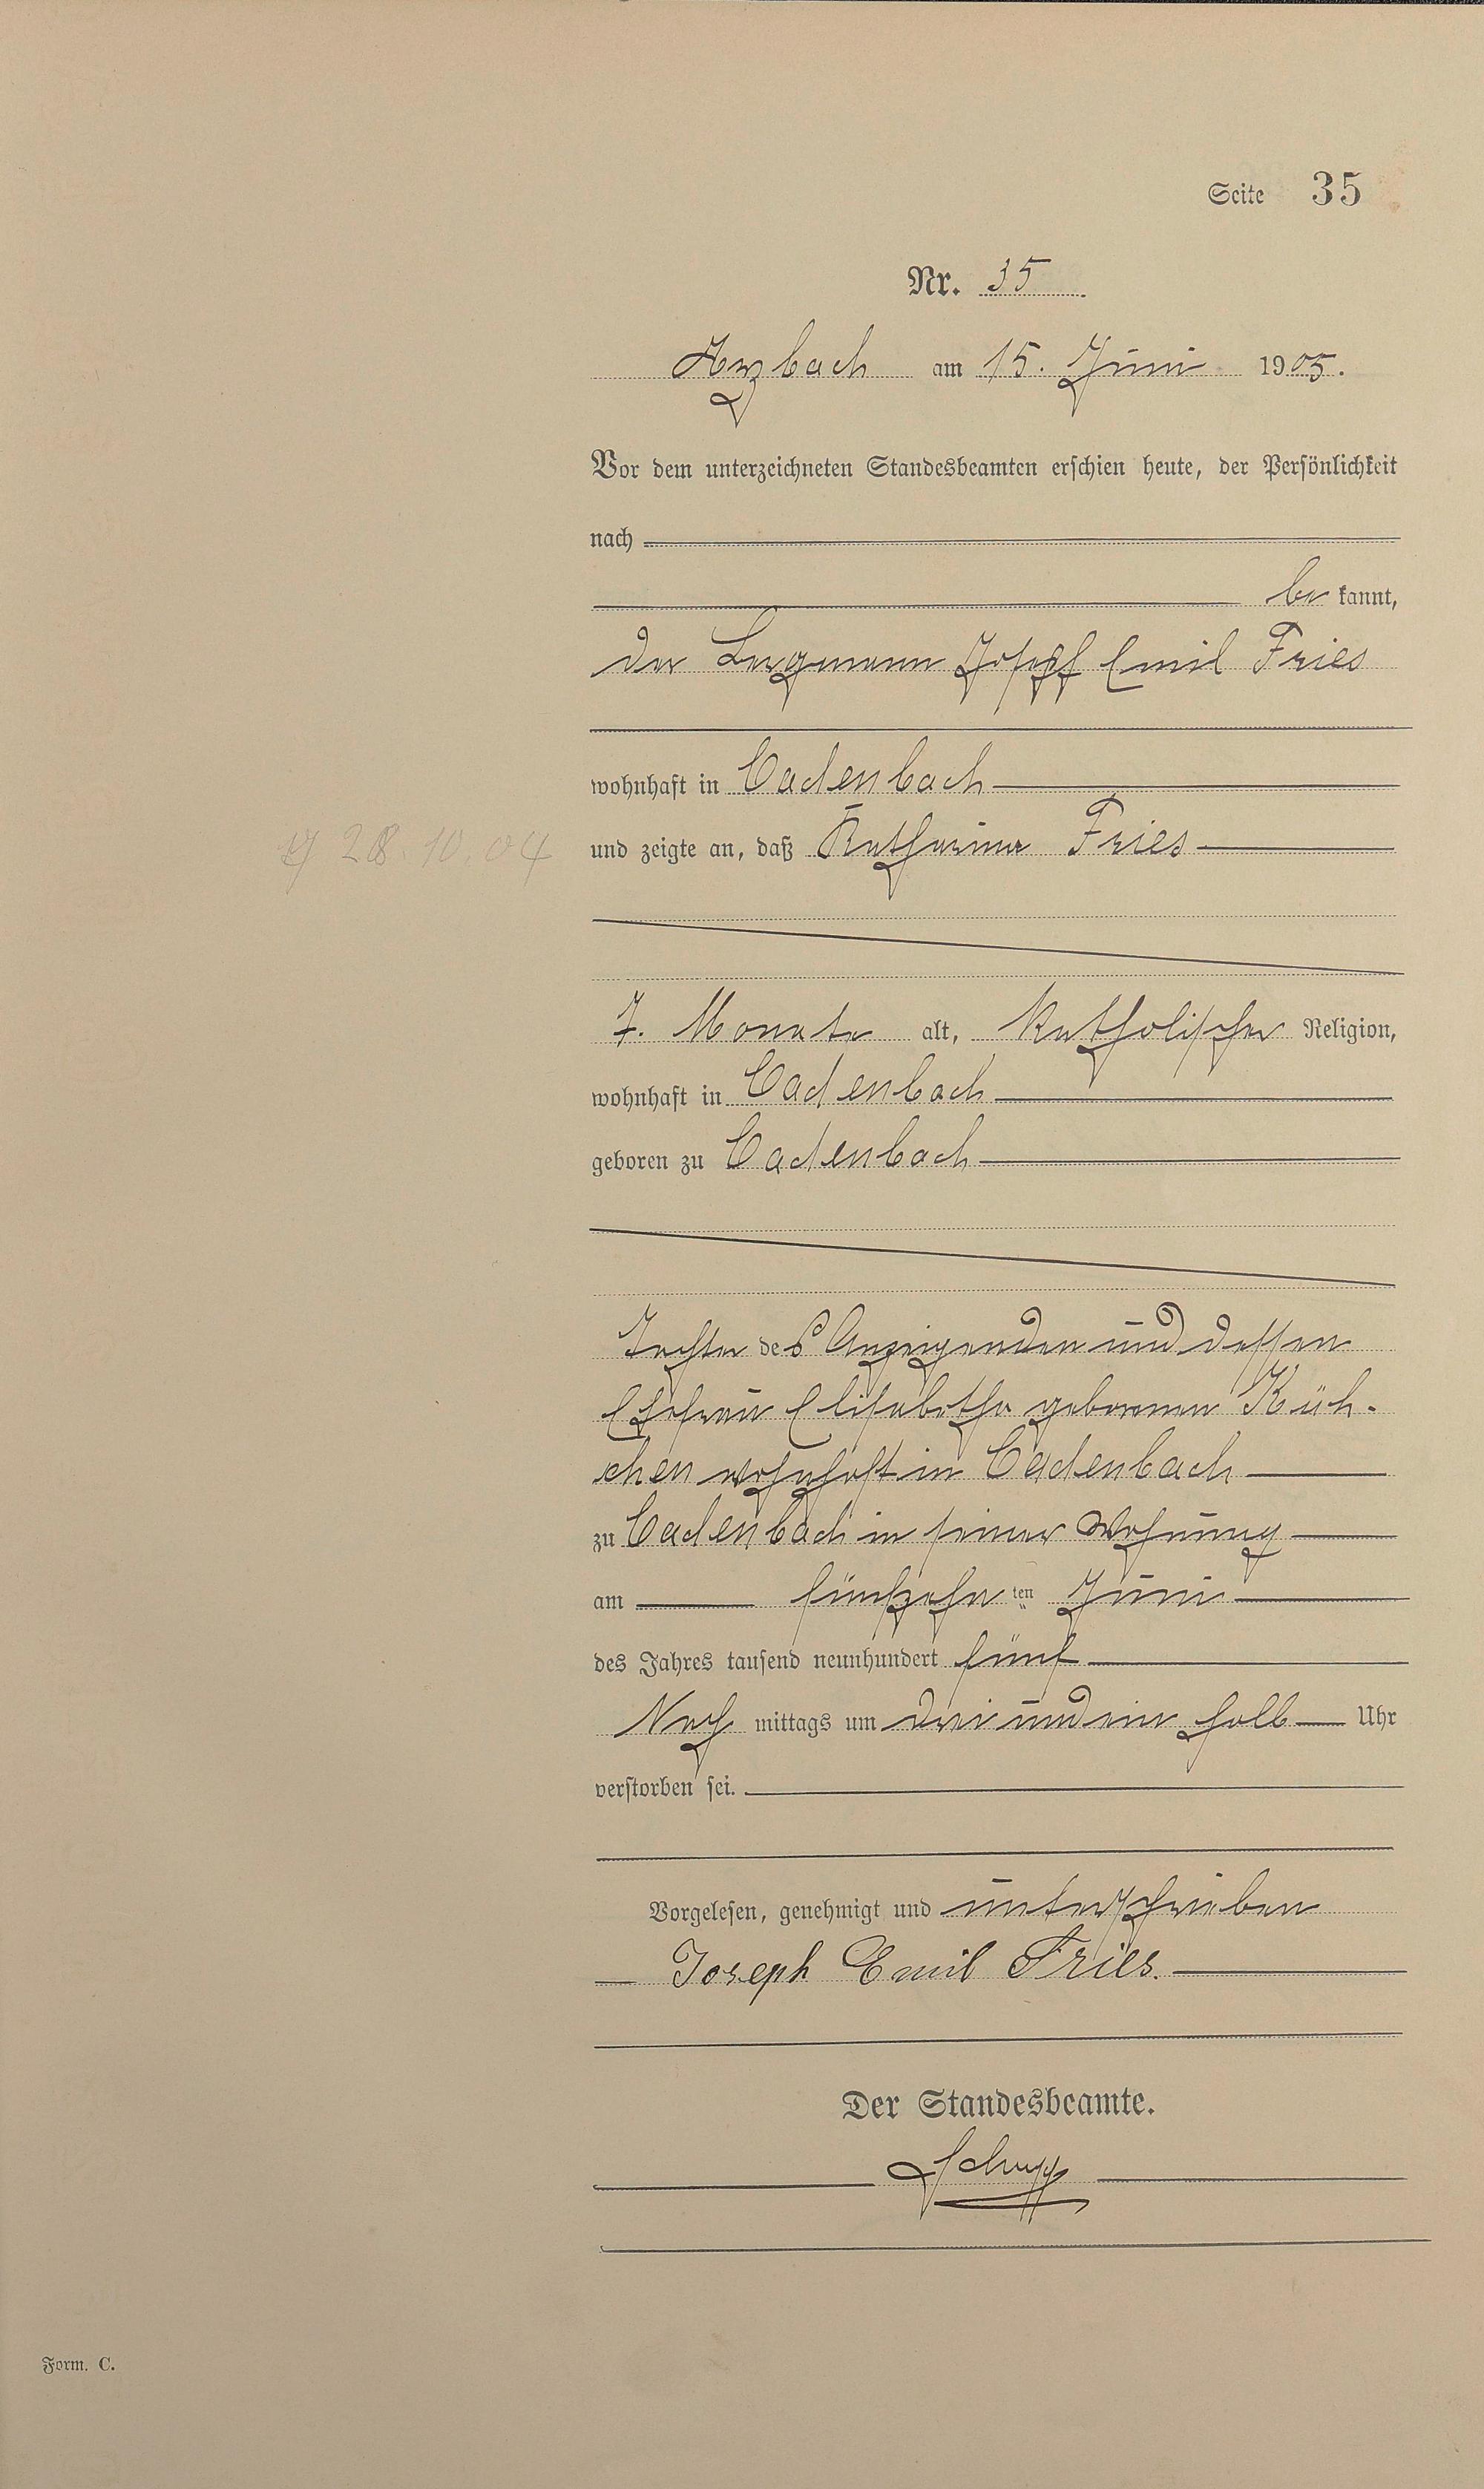 Seite 35
Nr. 35
Arzbach am 15. Juni 1905.
Vor dem unterzeichneten Standesbeamten erschien heute, der Persönlichkeit
nach
be kannt,
der Bergmann Joseph Emil Fries
wohnhaft in Cadenbach
g 28.10.04 und zeigte an, daß Katharina Fries
7. Monate alt, katholischer Religion,
wohnhaft in Cadenbach
geboren zu Cadenbach
Tochter des Anzeigenden und dessen
Ehefrau Elisabetha geborenen Küh-
chen wohnhaft in Cadenbach
zu Cadenbach in seiner Wohnung
am fünfzehn ten Juni
des Jahres tausend neunhundert fünf
Nach mittags um drei und ein halb Uhr
verstorben sei.
Vorgelesen, genehmigt und unterschrieben
Joseph Emil Fries.
Der Standesbeamte.
Schupp
Form. C.